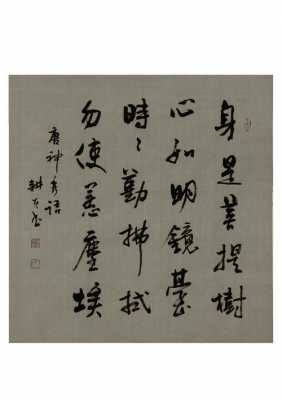 身是菩提樹
心如明鏡臺
時々勤拂拭
勿使惹塵埃
唐神秀語